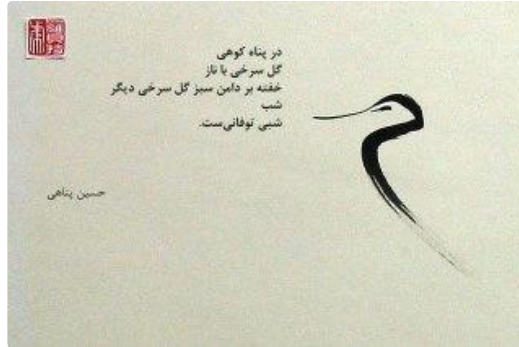 در پناه کوهی
گل سرخی با ناز
خفته بر دامن سبز گل سرخی دیگر
شب
شبی توفانی‌ست.
حسین پناهی